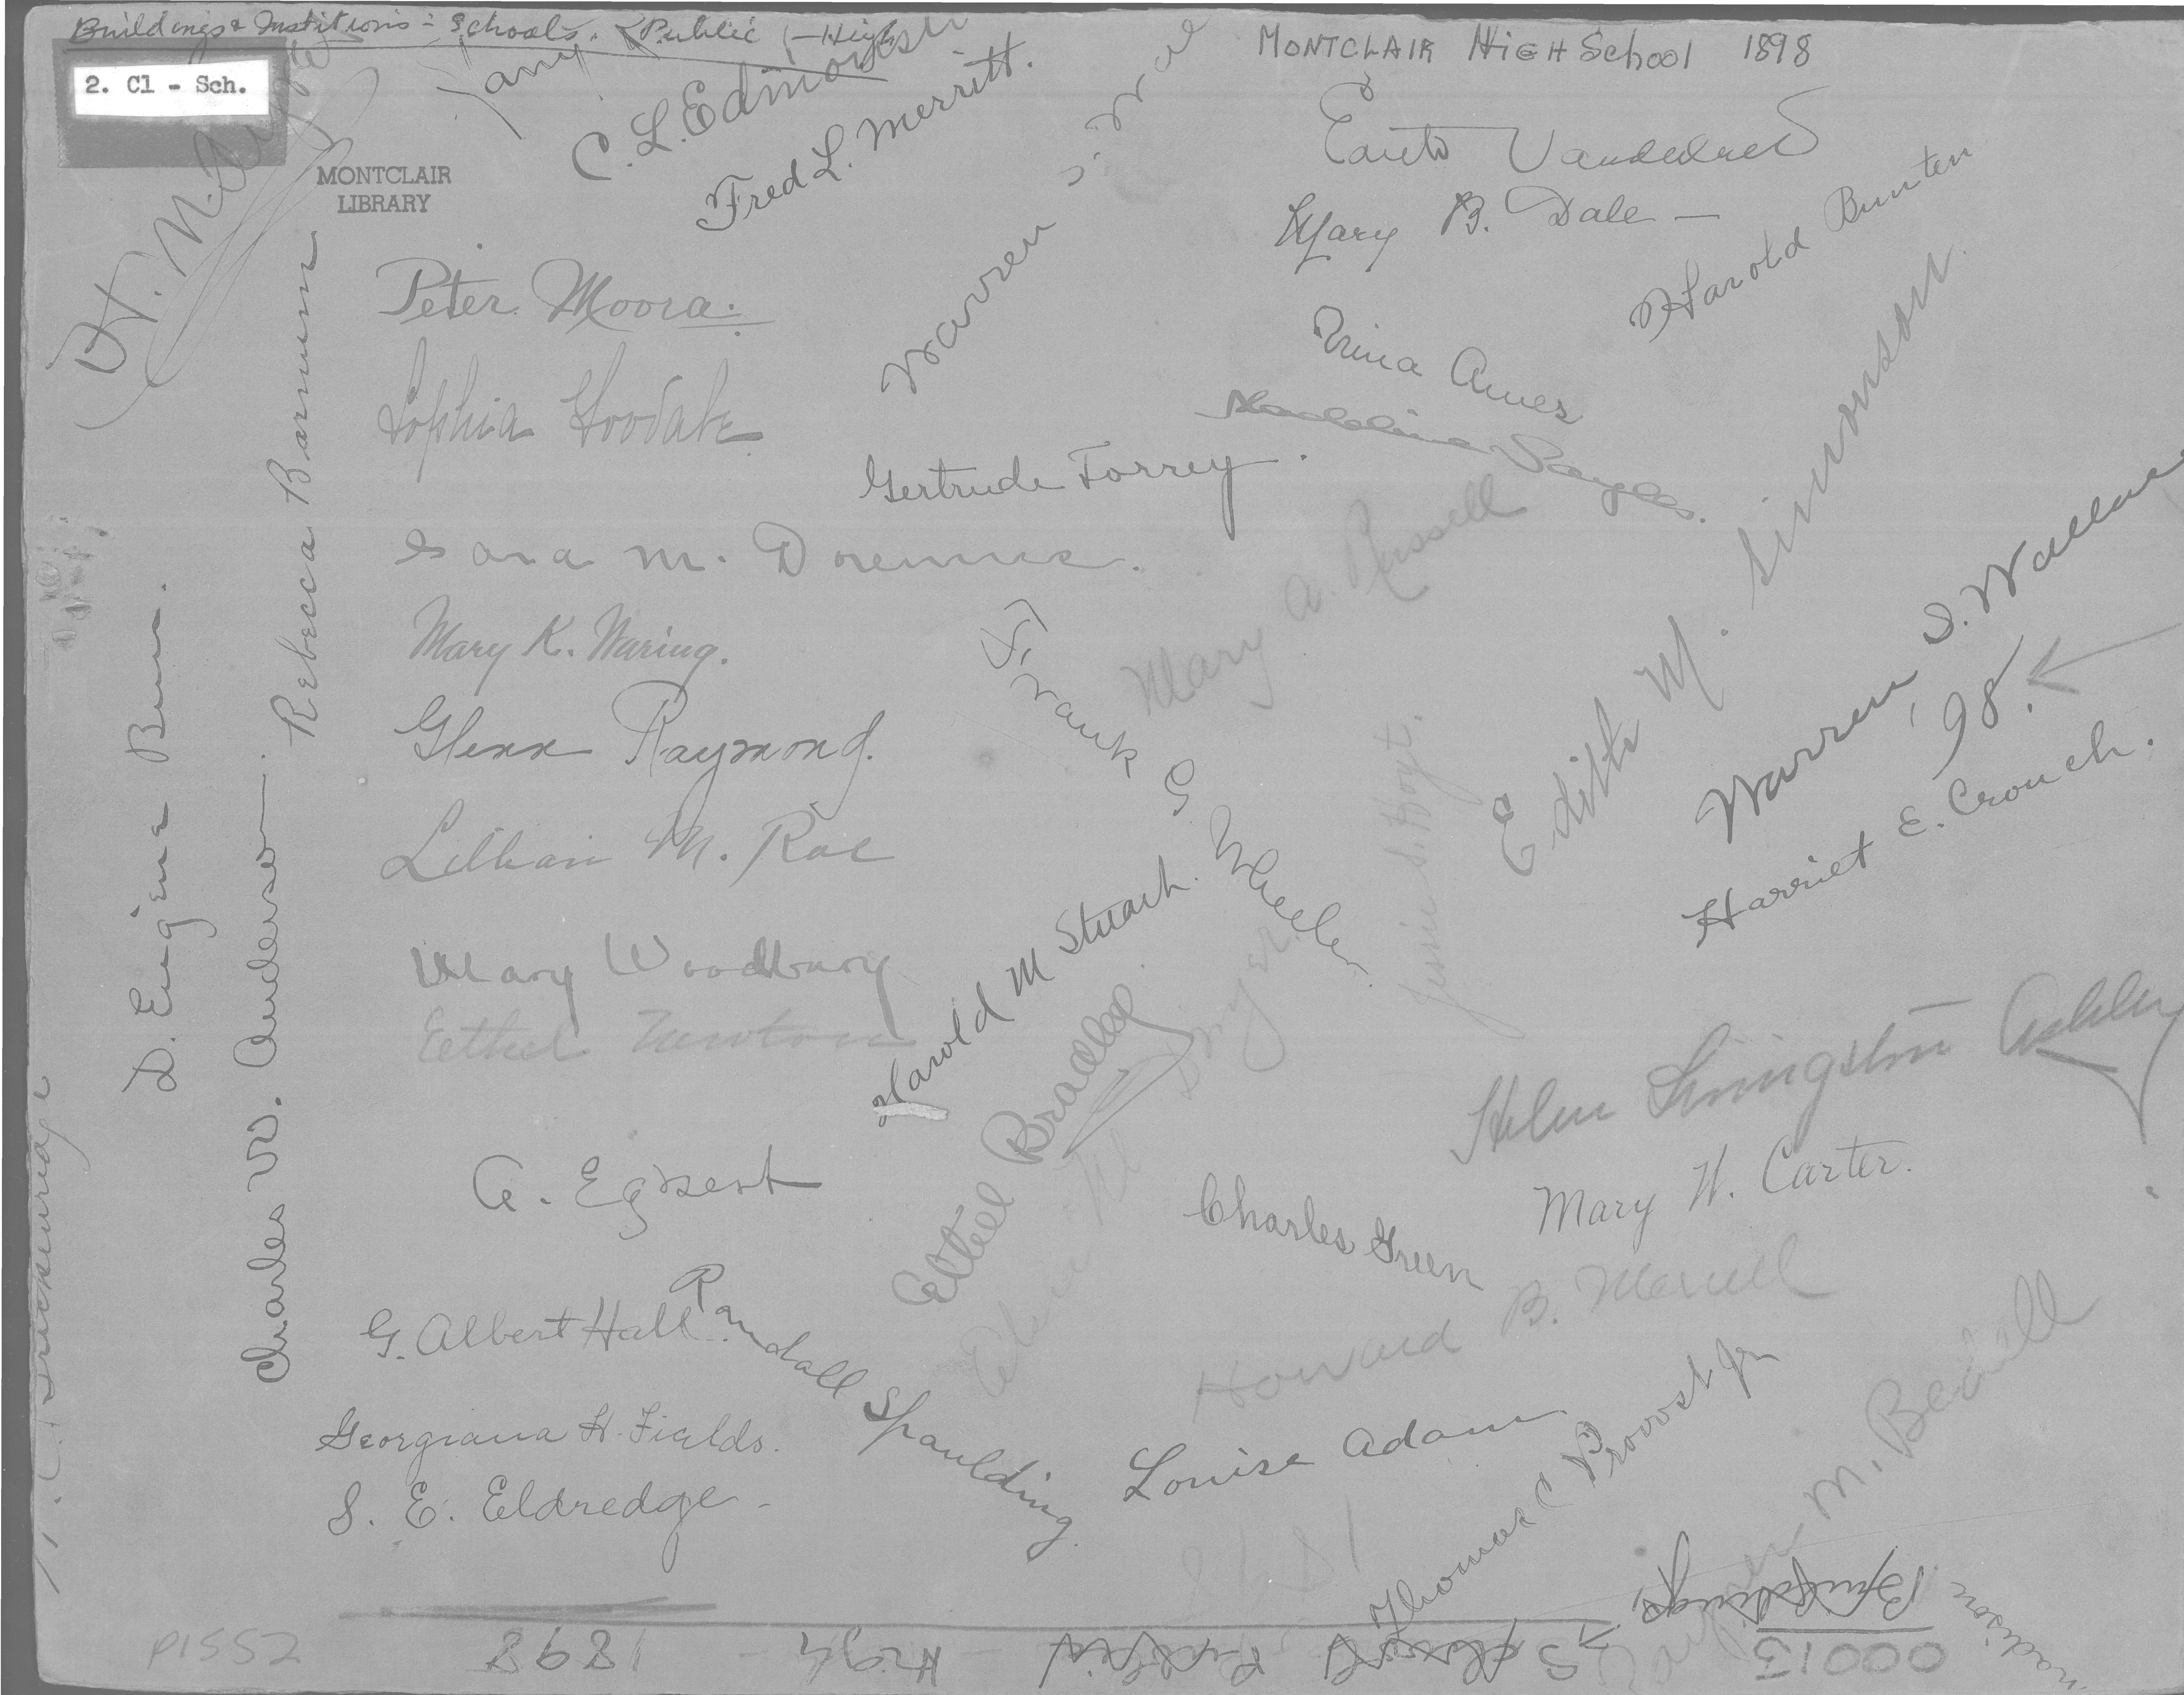 Buildings & Institutions - Schools. Public - High
MONTCLAIR HIGH School 1898
2. Cl - Sch.
MONTCLAIR
LIBRARY
C. L. Edmonston
Fred L. Merritt.
Warren S.
Mary B. Dale -
Harold Bunten
Peter Moora.
Ames
Sophia Goodale
Rebecca Barnum
Gertrude Torrey.
Edith M. Simonson.
Mary A. Russell
Sara M. Doremus.
Mary K. Waring.
Frank G. Wheeler
Warren S. Wallace
'98.
Glenn Raymond.
Harriet E. Crouch.
Jessie S. Hoyt.
S. Eugene
Charles W. Anderson
Lillian M. Rae
Harold M Stuart.
Mary Woodbury
Ethel Newton
Ethel Bradley
Helen Livingston Ashley
A. Egbert
Charles Green
Mary W. Carter.
G. Albert Hall.
Randall Spaulding.
Howard B. Merrill
Georgiana H. Fields.
Louise Adams
Thomas C Provost Jr
M. Bedell
S. E. Eldredge -
Buildings
Schools Public High - 1898
P1552
00013
Madison